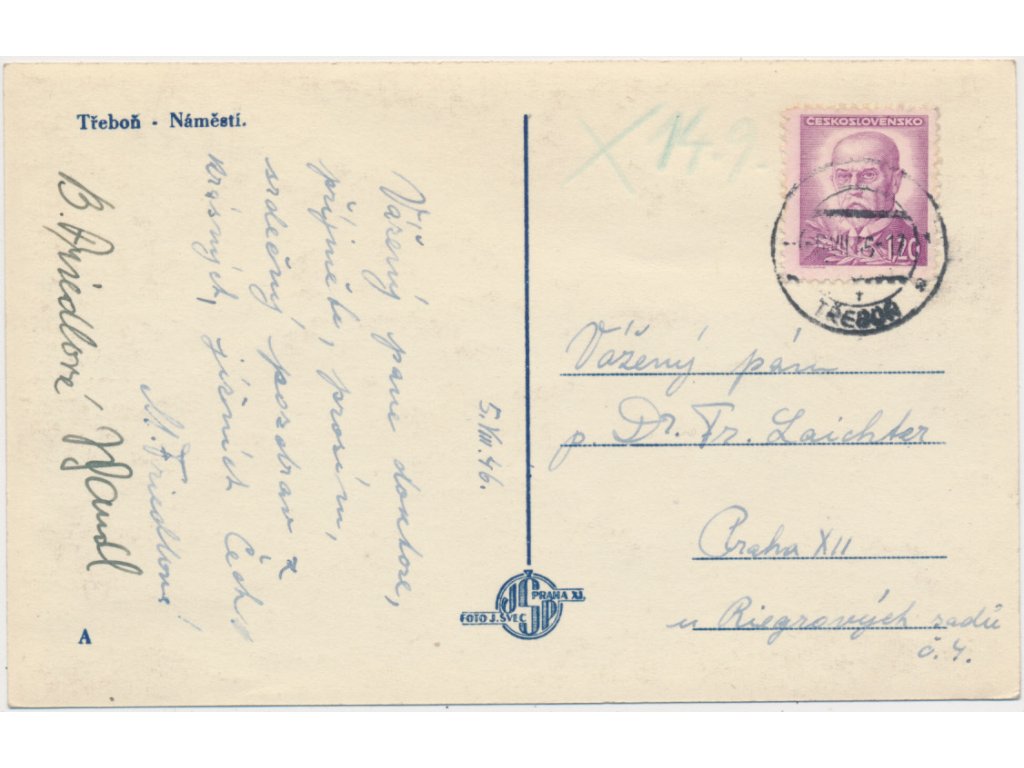 Třeboň - Náměstí.
Vážený pane doktore,
přijměte, prosím,
srdečný pozdrav z
krásných, jižních Čech
M. Friedlové
B. Friedlové
5. VIII. 46.
X 14. 9.
ČESKOSLOVENSKO
1,20
TŘEBOŇ
a
Vážený pán
p. Dr. Fr. Laichter
Praha XII
u Riegrových sadů
č. 4.
JŠP
PRAHA XI.
FOTO J. ŠVEC
A